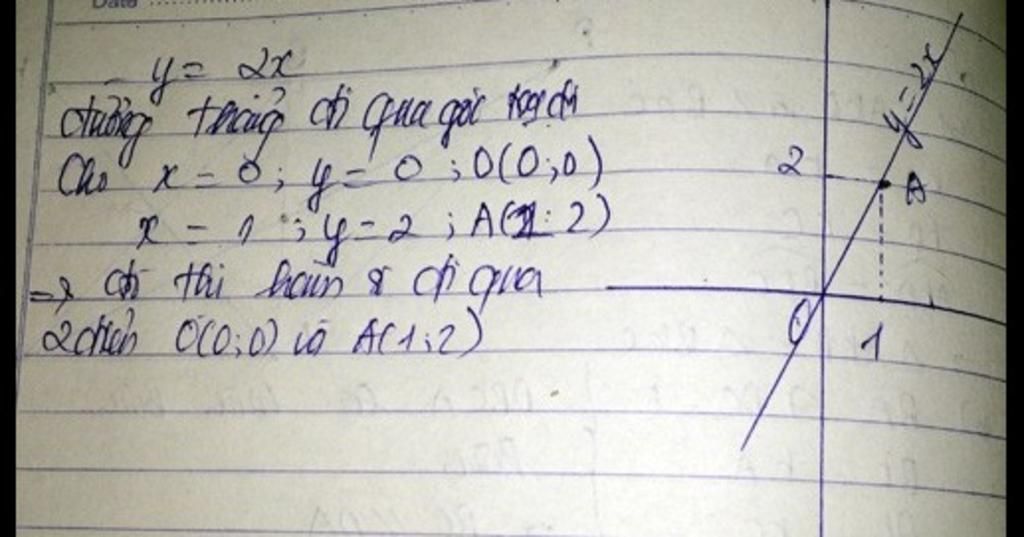 Date
- y = 2x
đường thẳng đi qua gốc tọa độ
Cho x = 0 ; y = 0 ; O(0;0)
x = 1 ; y = 2 ; A(1; 2)
=> đồ thị hàm số đi qua
2 điểm O(0;0) và A(1;2)
y = 2x
2
A
O
1